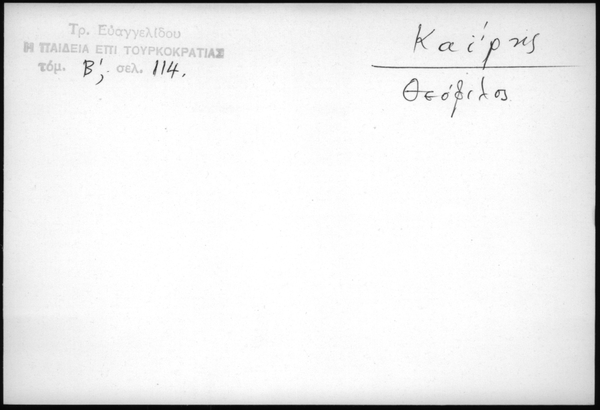 Τρ. Εὐαγγελίδου
Η ΠΑΙΔΕΙΑ ΕΠΙ ΤΟΥΡΚΟΚΡΑΤΙΑΣ
τόμ. Β΄, σελ. 114.
Καΐρης
Θεόφιλος